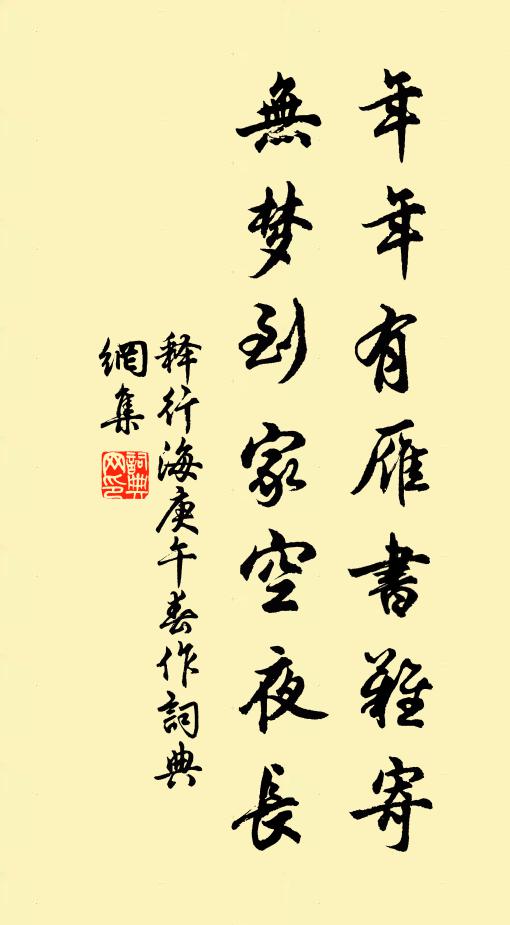 年年有雁書難寄
無梦到家空夜長
释行海庚午春作詞典
網集
詞典网印